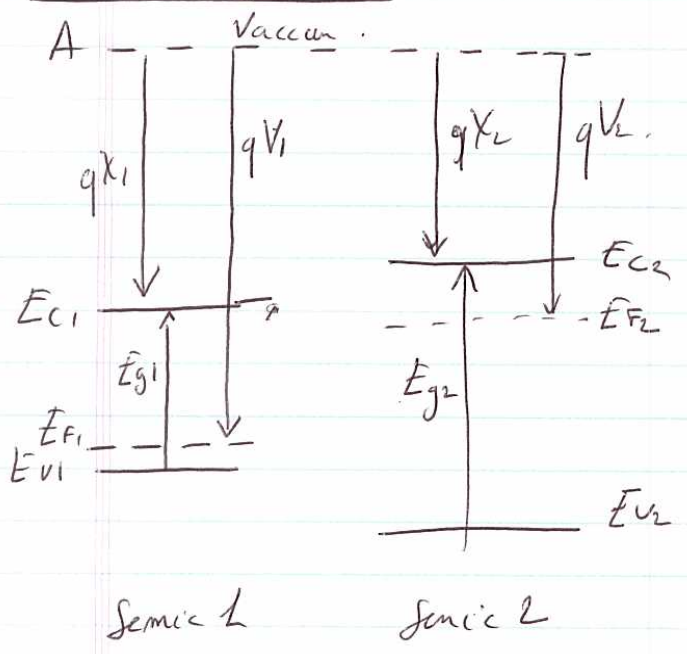 A Vaccum.
qX₁ qV₁ qX₂ qV₂.
EC₁ EC₂
Eg1 Eg₂ EF₂
EF₁
EV1
EV₂
Semic 1 Semic 2